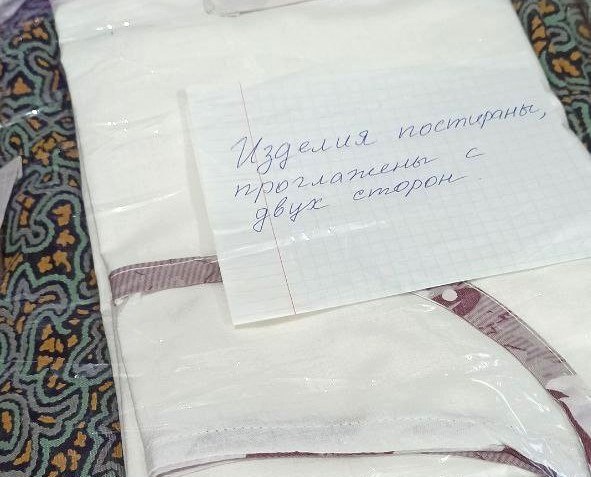 Изделия постираны,
проглажены с
двух сторон.